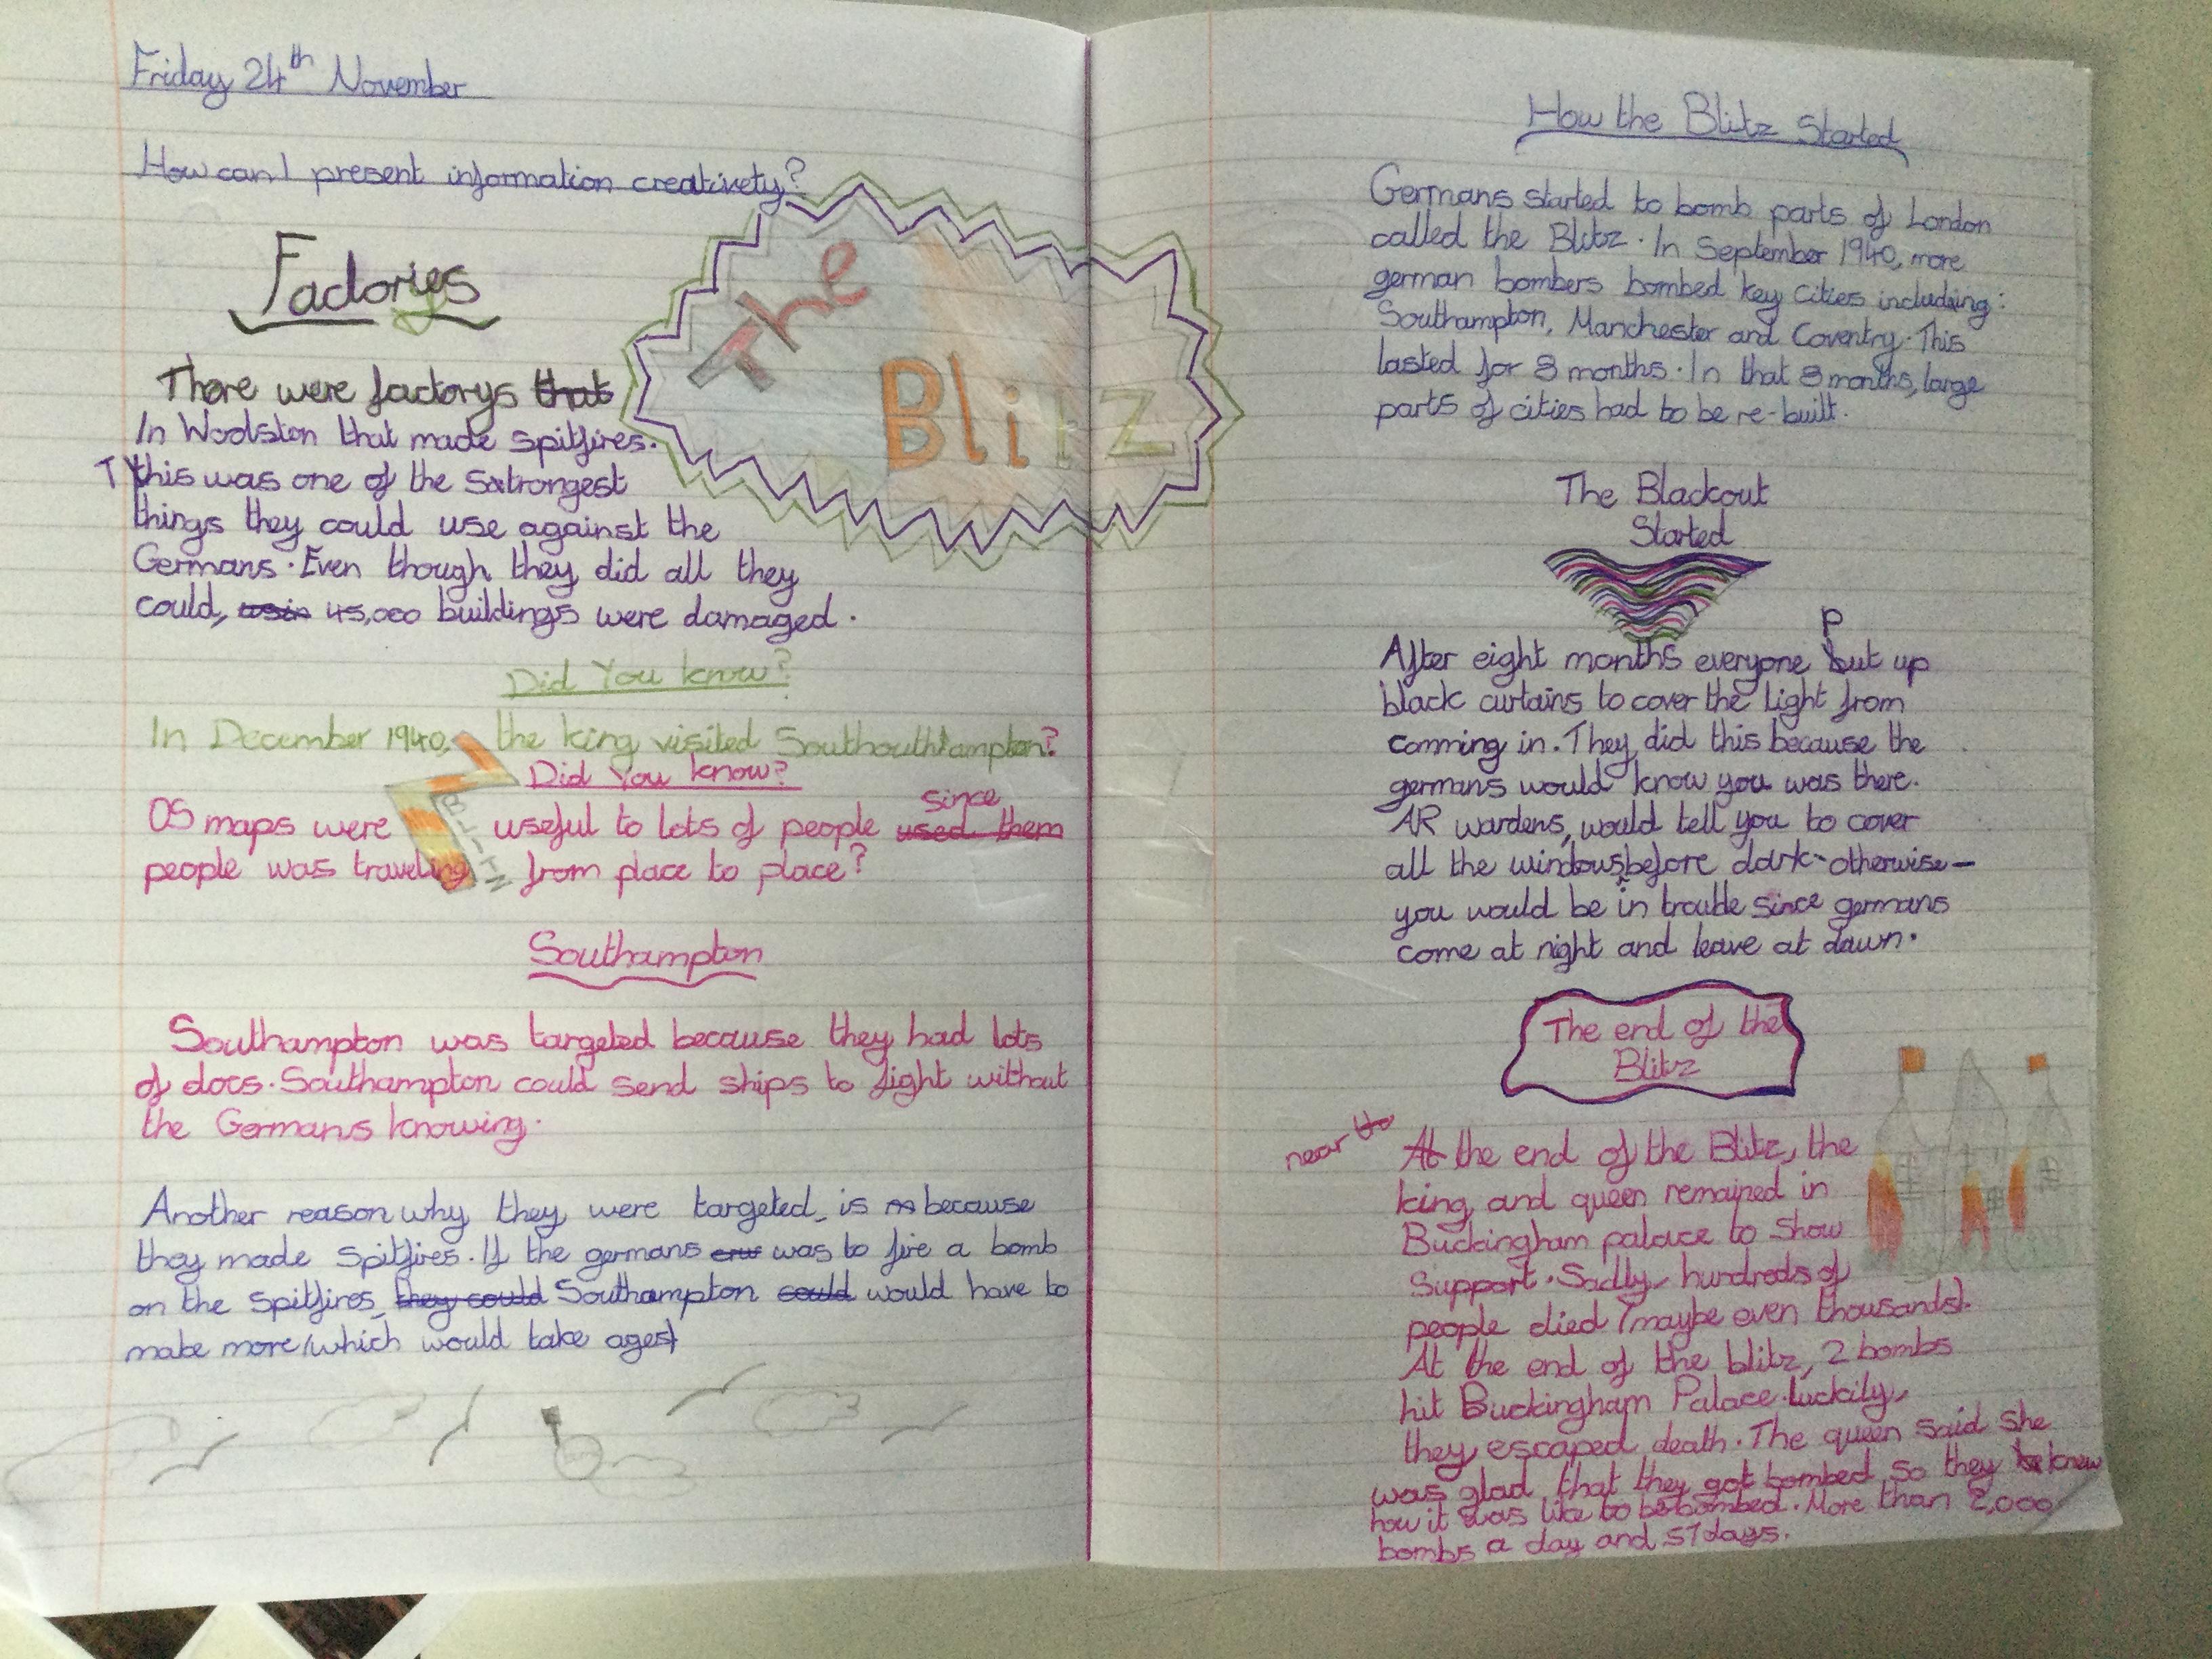 Friday 24th November
How can I present information creativety?
The
Blitz
Factories
There were factorys that
In Woolston that made spitfires.
This was one of the strongest
things they could use against the
Germans. Even though they did all they
could, 45,000 buildings were damaged.
Did You know?
In December 1940, the king visited Southouthampton?
Did You know?
OS maps were useful to lots of people since used them
people was traveling from place to place?
Southampton
Southampton was targeted because they had lots
of docs. Southampton could send ships to fight without
the Germans knowing.
Another reason why they were targeted, is because
they made spitfires. If the germans was to fire a bomb
on the spitfires, they could Southampton could would have to
make more (which would take ages)
How the Blitz Started
Germans started to bomb parts of London
called the Blitz. In September 1940, more
german bombers bombed key cities including:
Southampton, Manchester and Coventry. This
lasted for 8 months. In that 8 months, large
parts of cities had to be re-built.
The Blackout
Started
After eight months everyone put up
black curtains to cover the light from
comming in. They did this because the
germans would know you was there.
AR wardens, would tell you to cover
all the windows before dark - otherwise -
you would be in trouble since germans
come at night and leave at dawn.
The end of the
Blitz
near At the end of the Blitz, the
king and queen remained in
Buckingham palace to show
support. Sadly, hundreds of
people died (maybe even thousands).
At the end of the blitz, 2 bombs
hit Buckingham Palace. luckily,
they escaped death. The queen said she
was glad that they got bombed so they knew
how it was like to be bombed. More than 2,000
bombs a day and 57 days.